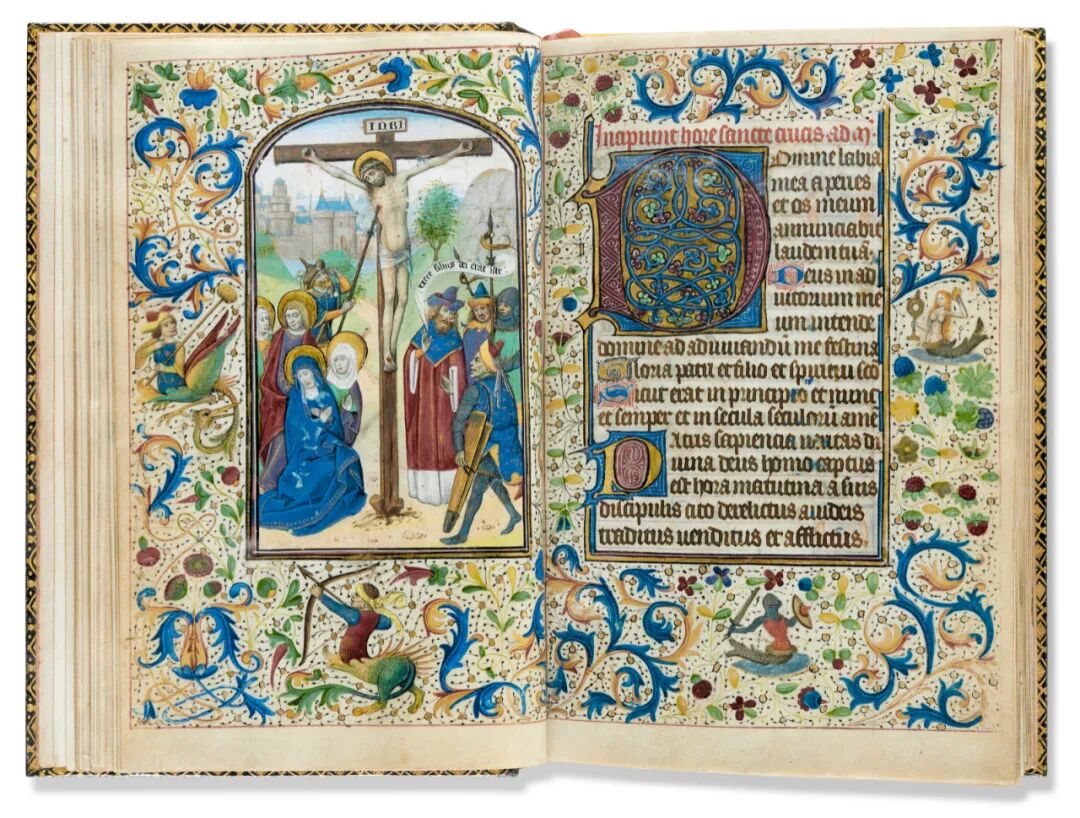 INRI
vere filius dei erat iste
Incipiunt hore sancte crucis ad m
Domine labia
mea aperies
et os meum
annunciabit
laudem tuā.
Deus in ad
iutorium me
um intende
domine ad adiuuandū me festina
Gloria patri et filio et spiritui sco
Sicut erat in principio et nunc
et semper et in secula seculorū amē
Patris sapiencia ueritas di
uina deus homo captus
est hora matutina a suis
discipulis cito derelictus a iudeis
traditus uenditus et afflictus.